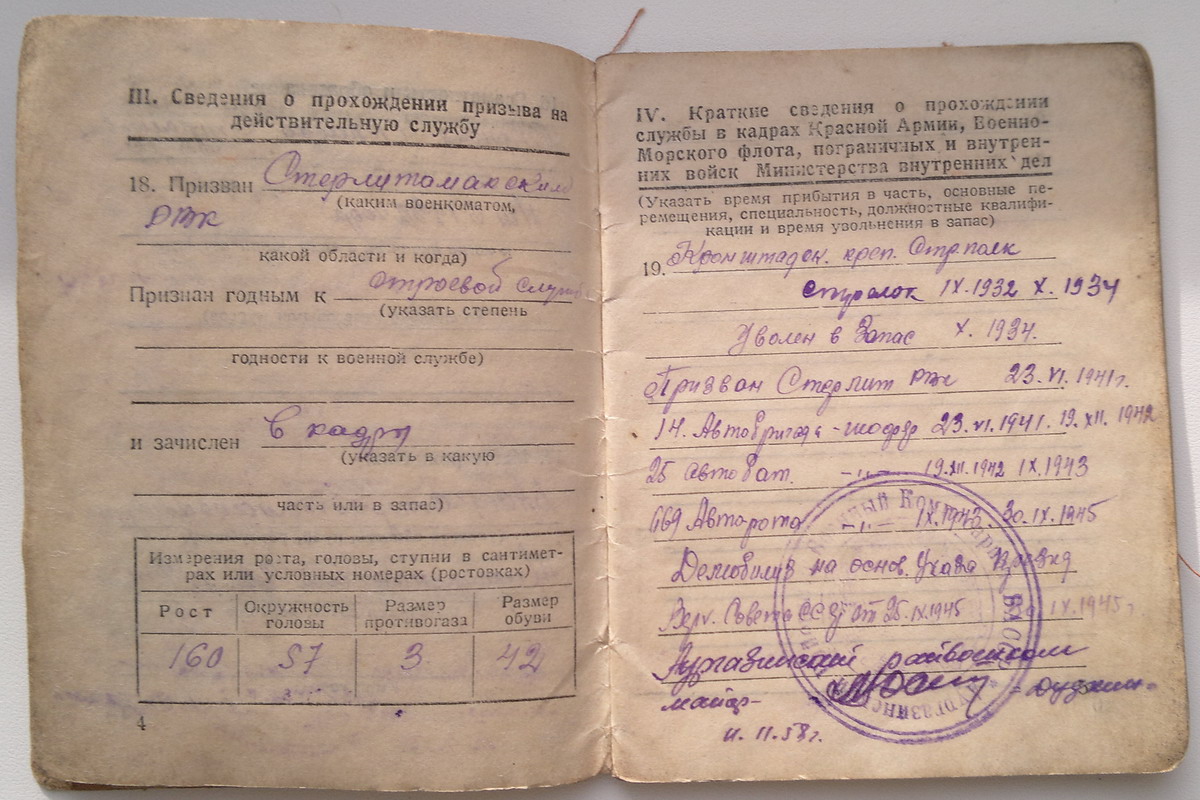 III. Сведения о прохождении призыва на
действительную службу
18. Призван Стерлитамакским
(каким военкоматом,
РВК
какой области и когда)
Признан годным к строевой службе
(указать степень
годности к военной службе)
и зачислен в кадры
(указать в какую
часть или в запас)
Измерения роста, головы, ступни в сантимет-
рах или условных номерах (ростовках)
Рост Окружность головы Размер противогаза Размер обуви
160 57 3 42
4
IV. Краткие сведения о прохождении
службы в кадрах Красной Армии, Военно-
Морского флота, пограничных и внутрен-
них войск Министерства внутренних дел
(Указать время прибытия в часть, основные пе-
ремещения, специальность, должностные квалифи-
кации и время увольнения в запас)
19. Кронштадск. креп. Стр. полк
стрелок IX.1932 X.1934
Уволен в Запас X.1934.
Призван Стерлит РВК 23.VI.1941г.
14. Автобригада - шофер 23.VI.1941. 19.XII.1942
25 автобат. -"- 19.XII.1942 IX.1943
669 Авторота -"- IX.1943. 30.IX.1945
Демобилиз на основ. Указа Презид
Верх. Совета СССР от 25.IX.1945 IX.1945г
Аургазинский райвоенком
майор
11.58г.